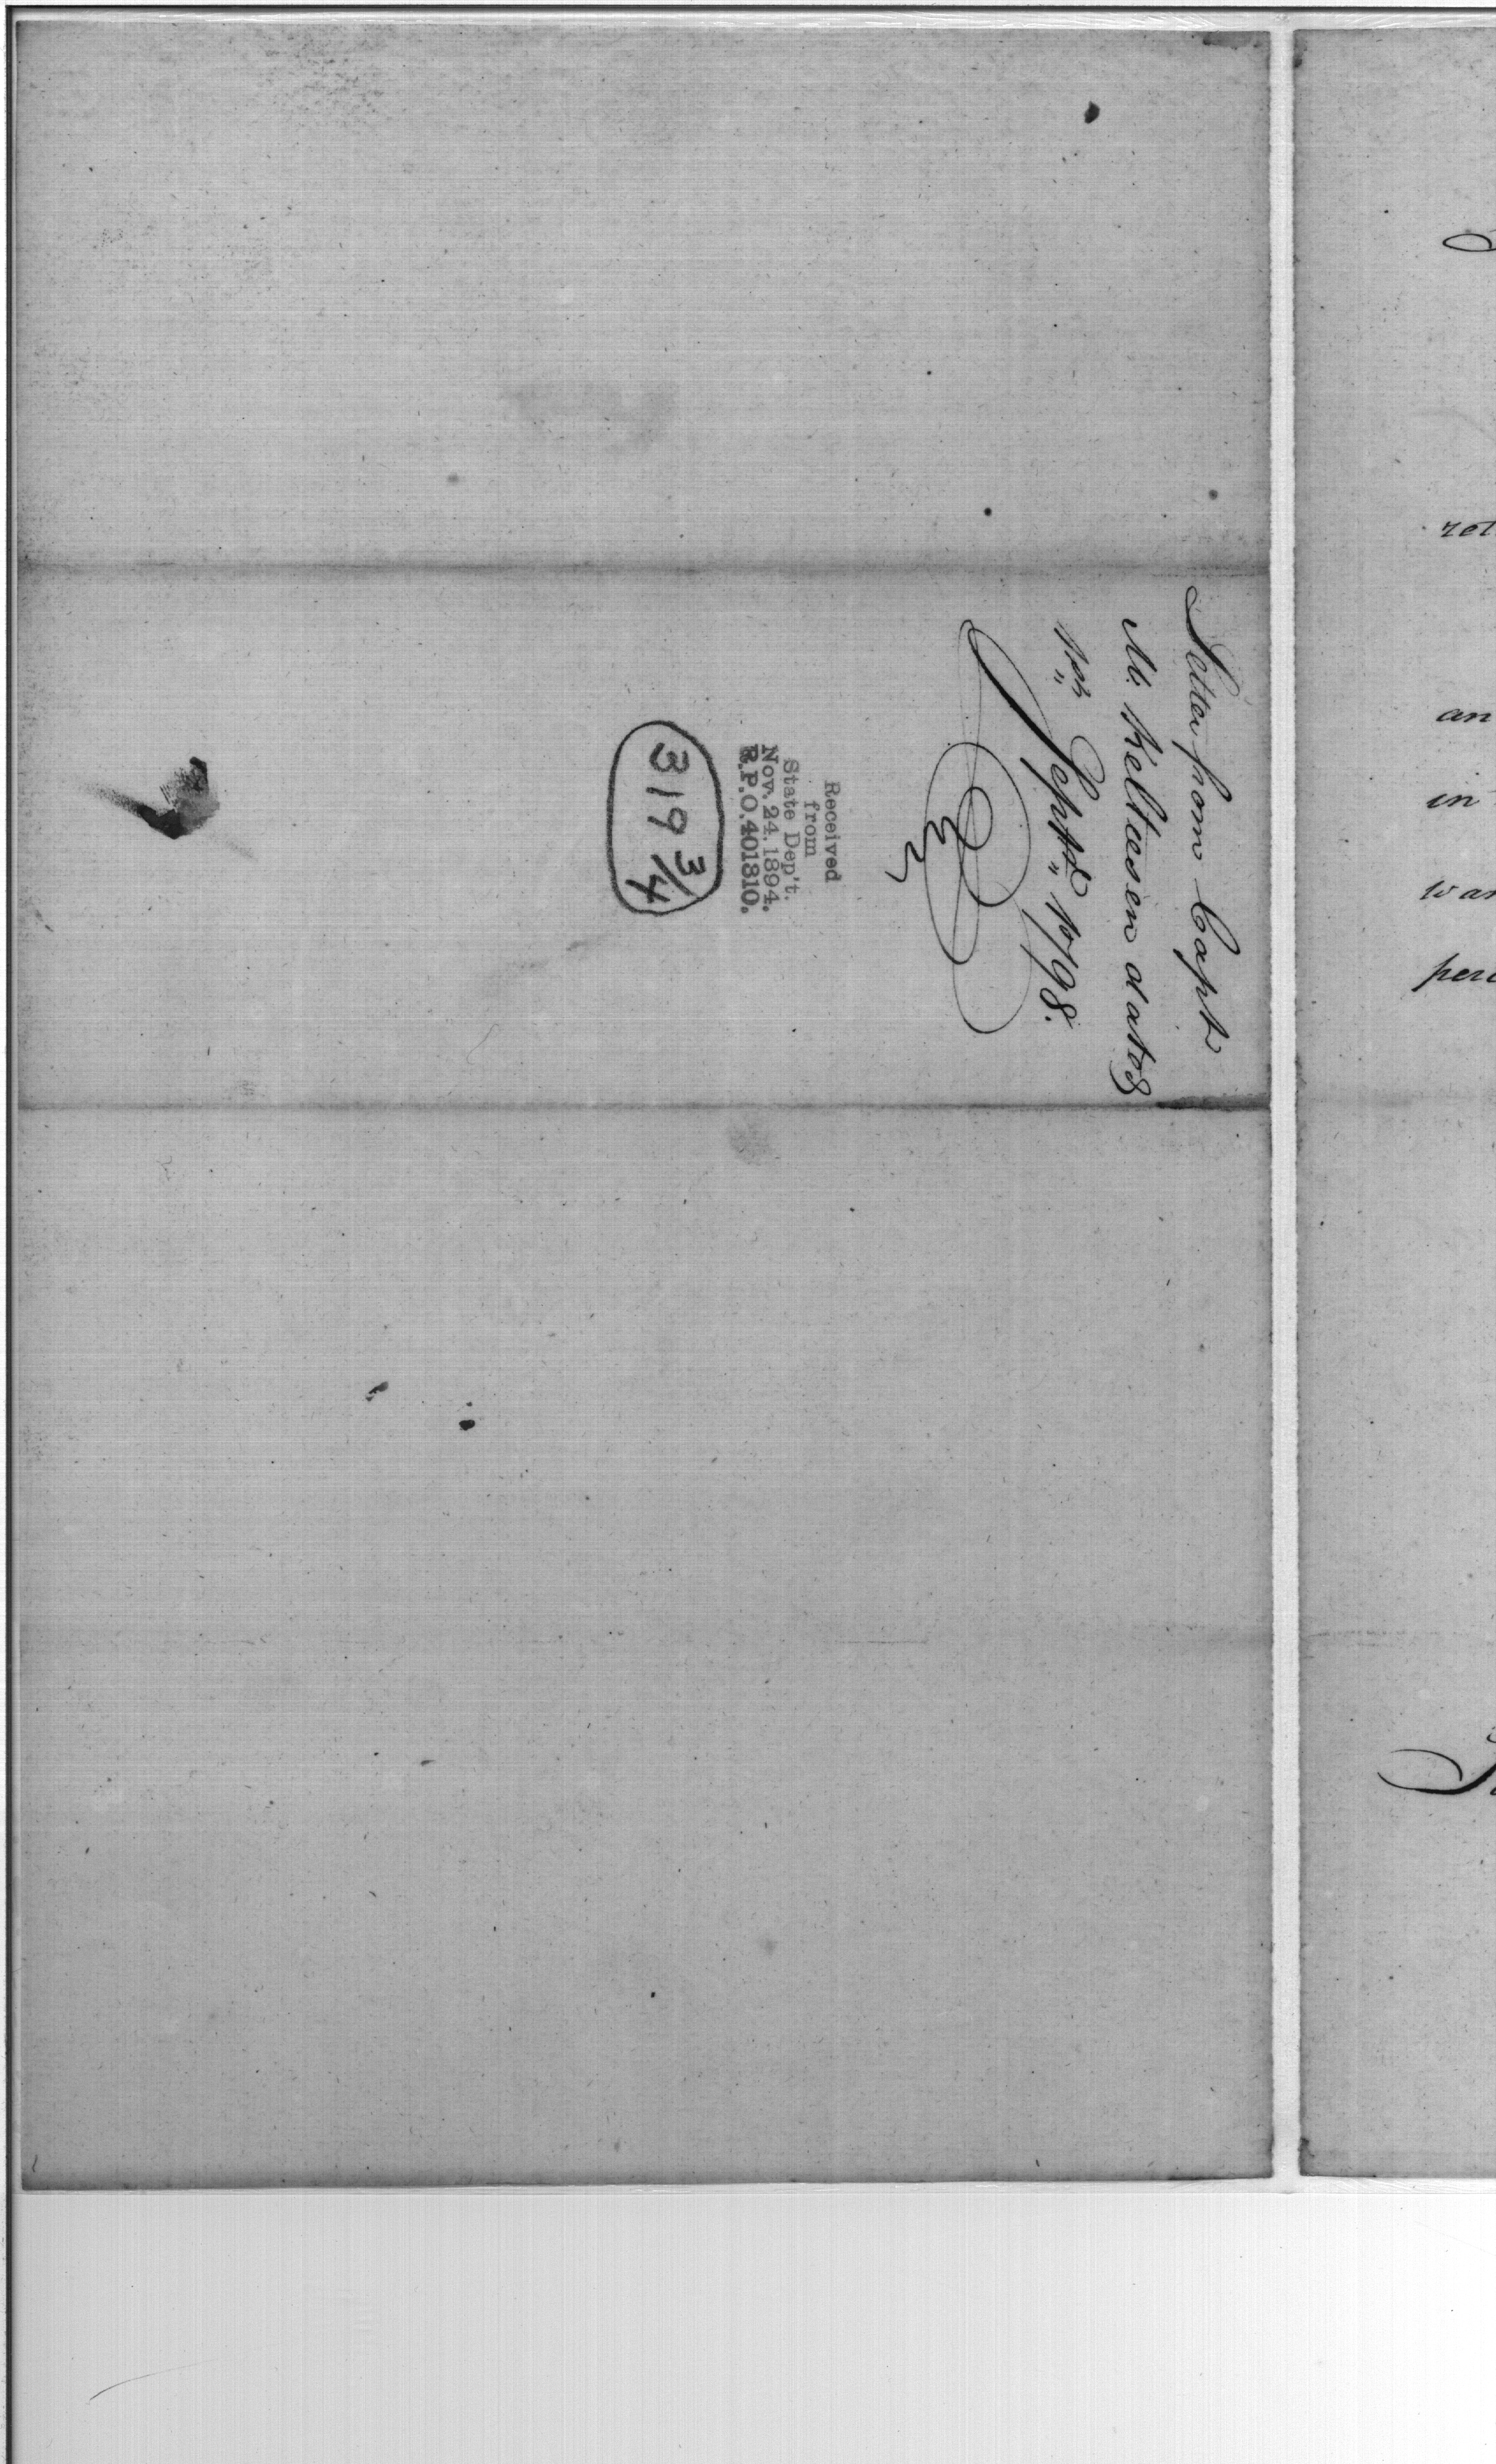 Letter from Capt
M. Kelteesen dated
1st Septr 1798.
Received
from
State Dep't.
Nov. 24. 1894.
R.P.O. 401310.
319 3/4
ret
an
in
war